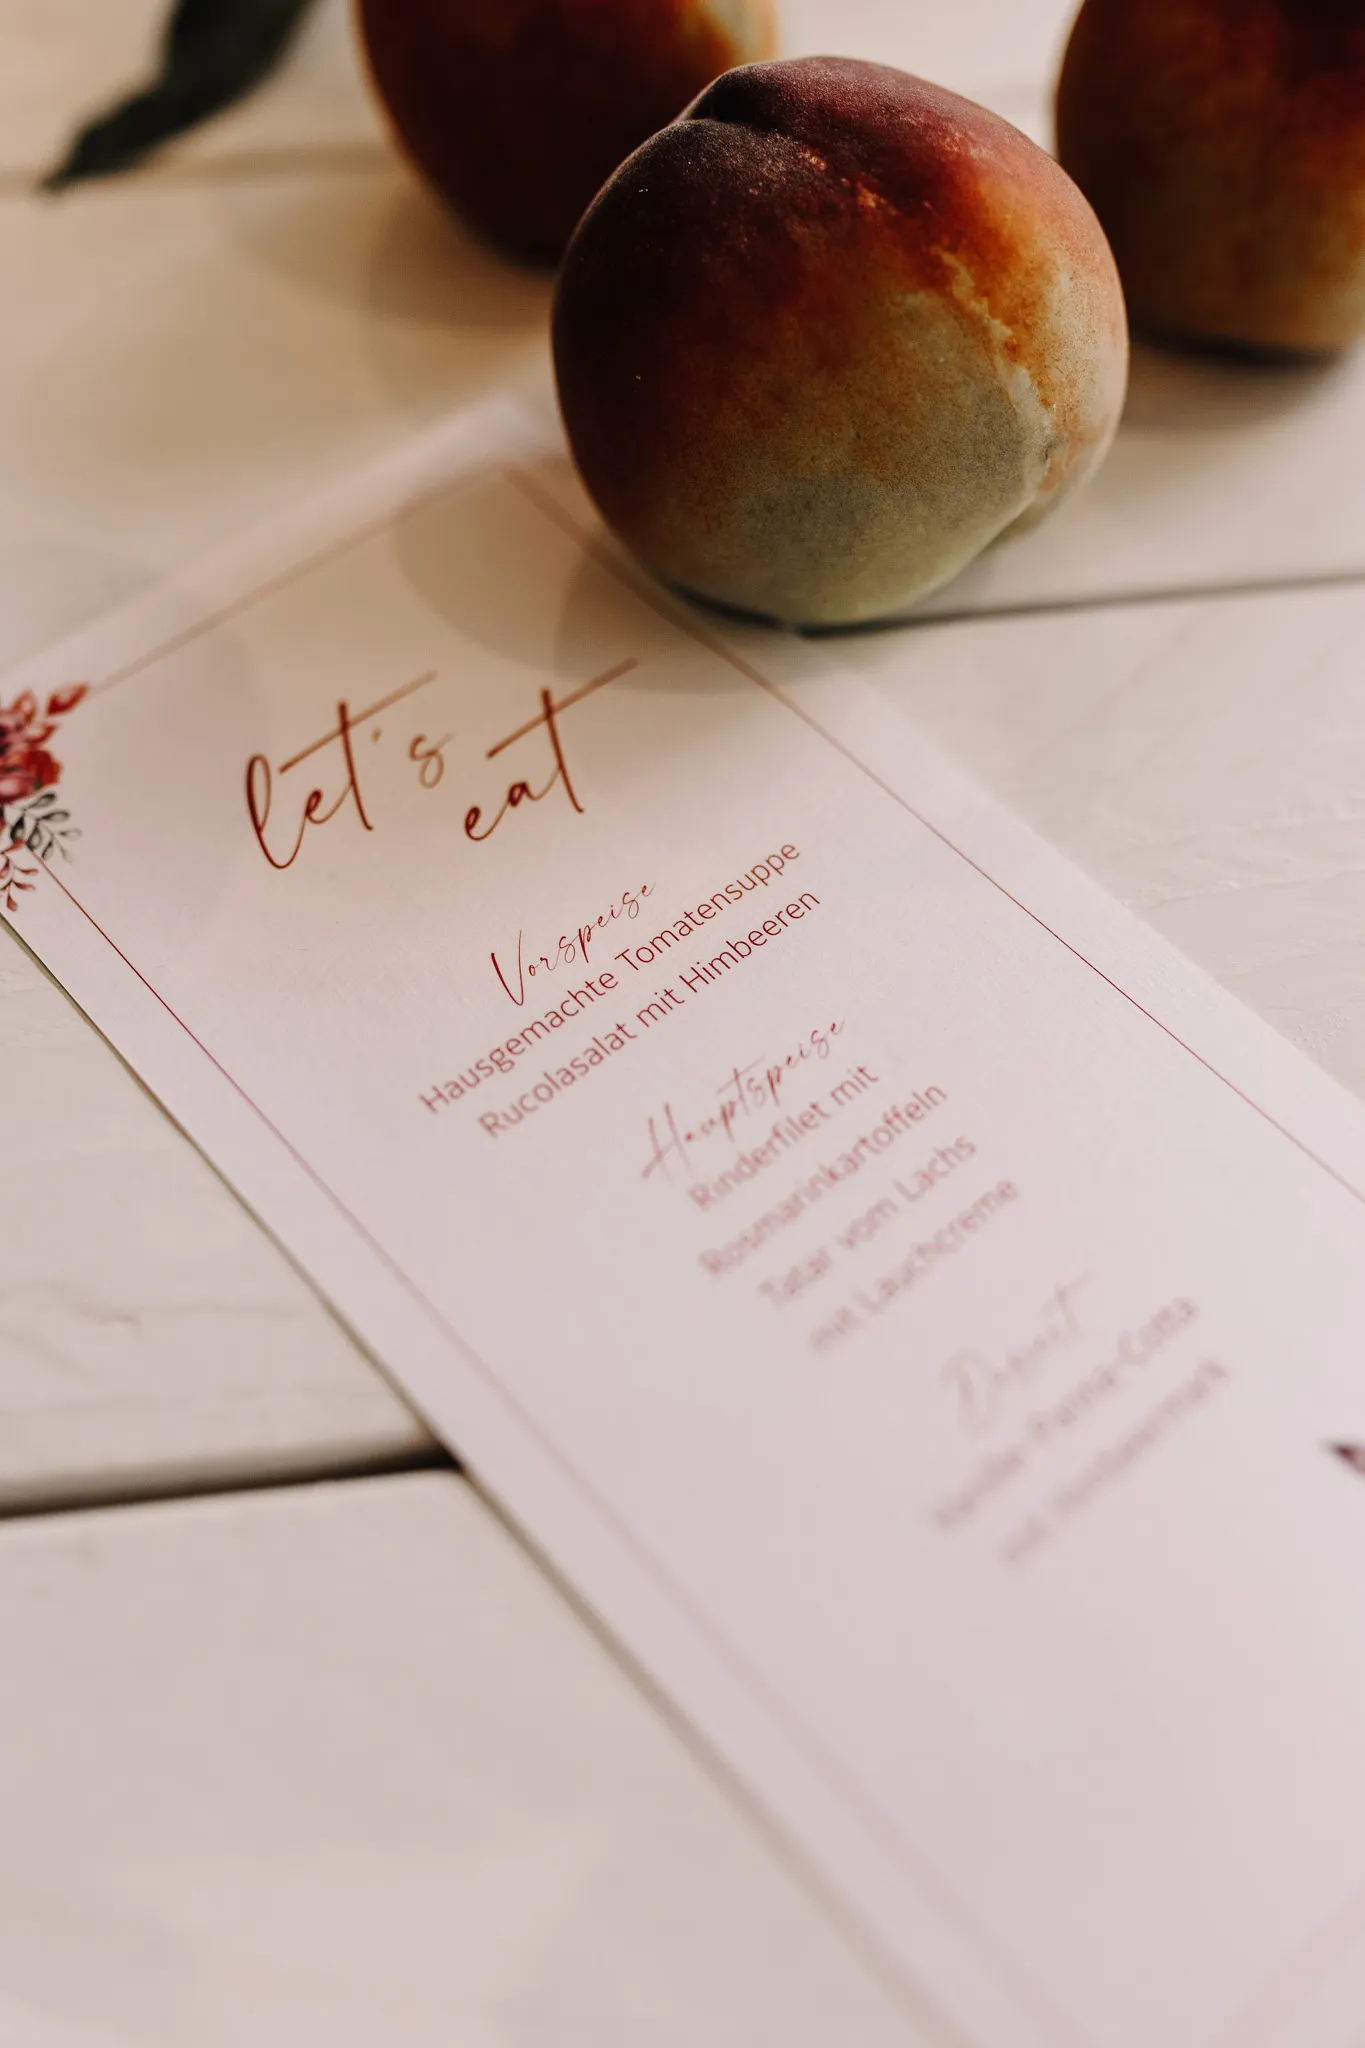 let's
eat
Vorspeise
Hausgemachte Tomatensuppe
Rucolasalat mit Himbeeren
Hauptspeise
Rinderfilet mit
Rosmarinkartoffeln
Tatar vom Lachs
mit Lauchcreme
Dessert
Panna-Cotta